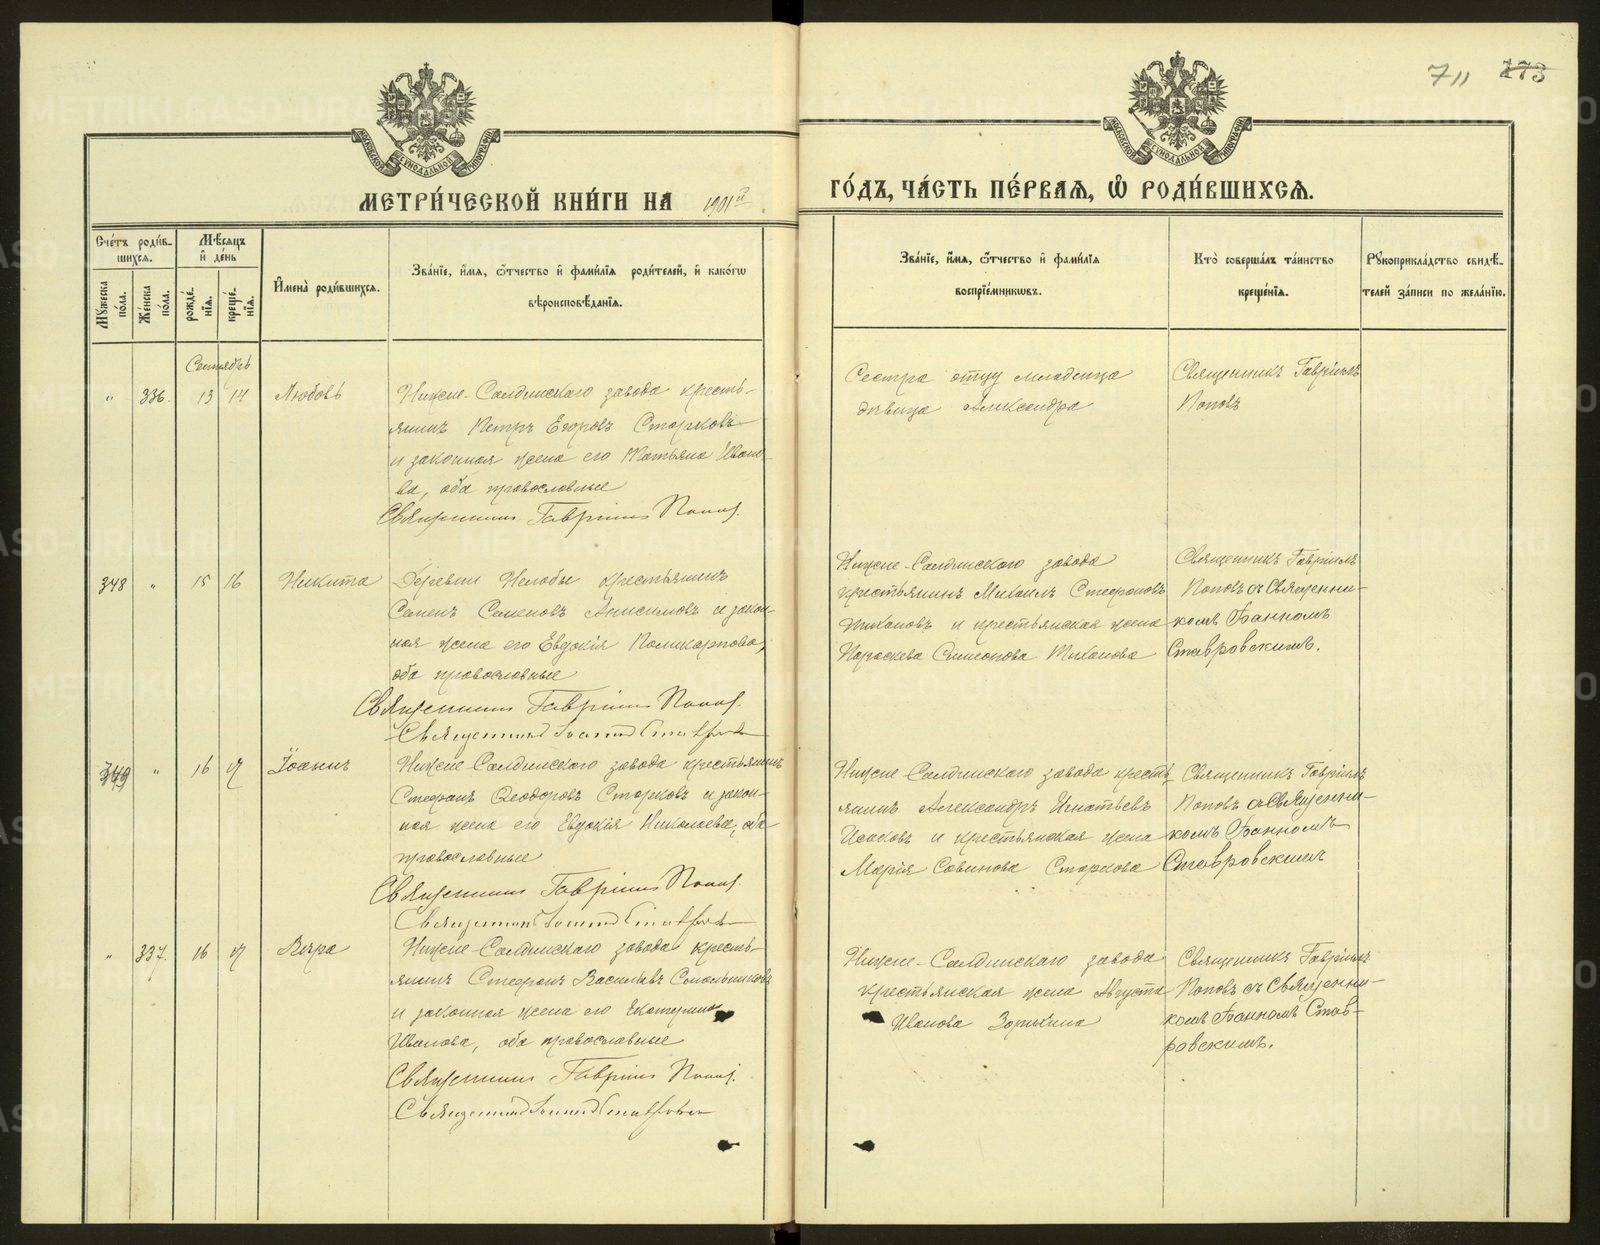 711 173
МОСКОВСКОЙ СѴНОДАЛЬНОЙ ТИПОГРАФІИ
МОСКОВСКОЙ СѴНОДАЛЬНОЙ ТИПОГРАФІИ
МЕТРИ́ЧЕСКОЙ КНИ́ГИ НА 1901й ГО́ДЪ, ЧА́СТЬ ПЕ́РВАЯ, Ѽ РОДИ́ВШИХСЯ.
Сче́тъ роди́в-
шихся.
Мꙋжеска по́ла.
Же́нска по́ла.
Мѣ́сяцъ
и́ де́нь
рожде́-
нїя.
креще́-
нїя.
И́мена̀ роди́вшихся.
Зва́нїе, и́мя, ѻ́тчество и́ фами́лїя роди́телей, и́ како́гѡ
вѣроисповѣ́данїя.
Зва́нїе, и́мя, ѻ́тчество и́ фами́лїя
воспрїе́мникѡвъ.
Кто̀ соверша́лъ та́инство
креще́нїя.
Рꙋкоприкла́дство свидѣ́-
телей за́писи по жела́нїю.
Сентябрь
" 336. 13 14 Любовь
Нижне-Салдинскаго завода кресть-
янинъ Петръ Егоровъ Старковъ
и законная жена его Татьяна Ивано-
ва, оба православные
Священникъ Гавріилъ Поповъ.
Сестра отцу младенца
дѣвица Александра
Священникъ Гавріилъ
Поповъ
348 " 15 16 Никита
Деревни Нелобы крестьянинъ
Семенъ Семеновъ Анисимовъ и закон-
ная жена его Евдокія Поликарпова,
оба православные
Священникъ Гавріилъ Поповъ.
Священникъ Іоаннъ Ставровскій
Нижне-Салдинскаго завода
крестьянинъ Михаилъ Стефановъ
Тихановъ и крестьянская жена
Параскева Симеонова Тиханова
Священникъ Гавріилъ
Поповъ съ Священни-
комъ Іоанномъ
Ставровскимъ.
349 " 16 17 Іоаннъ
Нижне-Салдинскаго завода крестьянинъ
Стефанъ Ѳеодоровъ Старковъ и закон-
ная жена его Евдокія Николаева, оба
православные
Священникъ Гавріилъ Поповъ.
Священникъ Іоаннъ Ставровскій
Нижне-Салдинскаго завода кресть-
янинъ Александръ Игнатьевъ
Исаковъ и крестьянская жена
Марія Савинова Старкова
Священникъ Гавріилъ
Поповъ съ Священни-
комъ Іоанномъ
Ставровскимъ
" 337. 16 17 Вѣра
Нижне-Салдинскаго завода кресть-
янинъ Стефанъ Васильевъ Смольниковъ
и законная жена его Екатерина
Иванова, оба православные
Священникъ Гавріилъ Поповъ.
Священникъ Іоаннъ Ставровскій
Нижне-Салдинскаго завода
крестьянская жена Августа
Иванова Зорихина
Священникъ Гавріилъ
Поповъ съ Священни-
комъ Іоанномъ Став-
ровскимъ.
METRIKI.GASO-URAL.RU